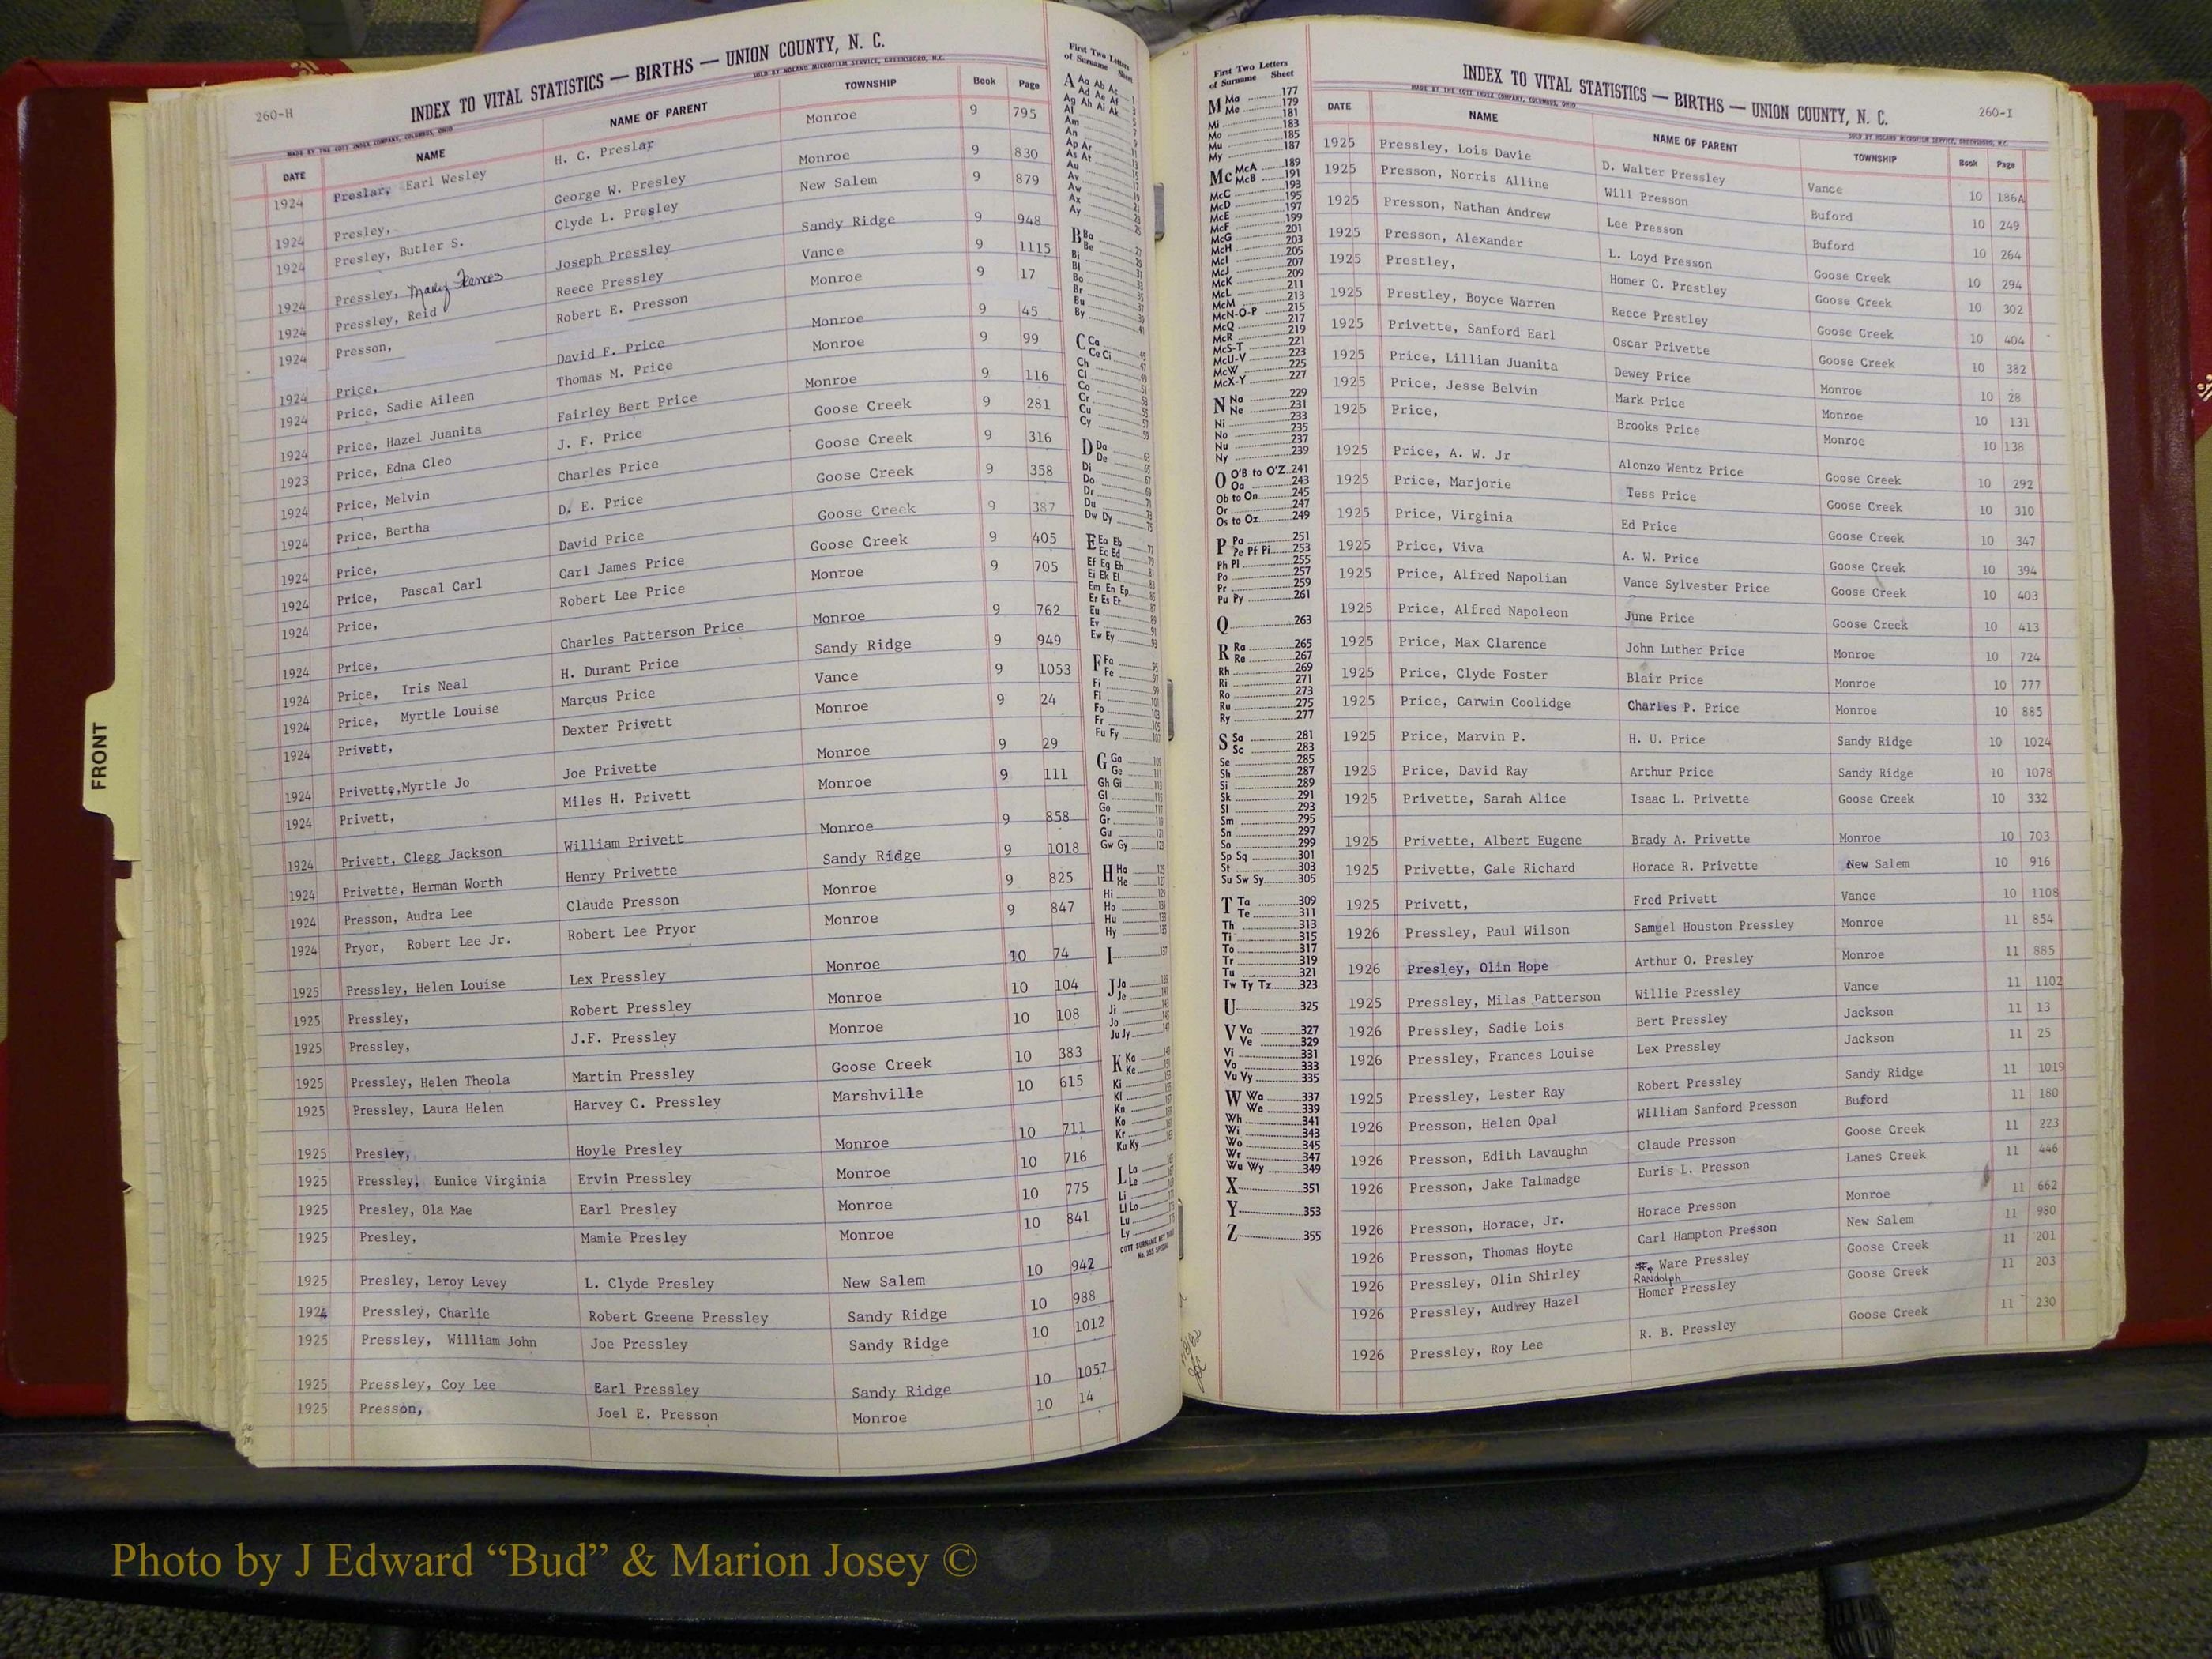 260-H
INDEX TO VITAL STATISTICS — BIRTHS — UNION COUNTY, N. C.
MADE BY THE COTT INDEX COMPANY, COLUMBUS, OHIO SOLD BY NOLAND MICROFILM SERVICE, GREENSBORO, N.C.
DATE NAME NAME OF PARENT TOWNSHIP Book Page
1924 Preslar, Earl Wesley H. C. Preslar Monroe 9 795
1924 Presley, George W. Presley Monroe 9 830
1924 Presley, Butler S. Clyde L. Presley New Salem 9 879
1924 Pressley, Mady Frances Joseph Pressley Sandy Ridge 9 948
1924 Pressley, Reid Reece Pressley Vance 9 1115
1924 Presson, Robert E. Presson Monroe 9 17
1924 Price, David F. Price Monroe 9 45
1924 Price, Sadie Aileen Thomas M. Price Monroe 9 99
1924 Price, Hazel Juanita Fairley Bert Price Monroe 9 116
1923 Price, Edna Cleo J. F. Price Goose Creek 9 281
1924 Price, Melvin Charles Price Goose Creek 9 316
1924 Price, Bertha D. E. Price Goose Creek 9 358
1924 Price, David Price Goose Creek 9 387
1924 Price, Pascal Carl Carl James Price Goose Creek 9 405
1924 Price, Robert Lee Price Monroe 9 705
1924 Price, Charles Patterson Price Monroe 9 762
1924 Price, Iris Neal H. Durant Price Sandy Ridge 9 949
1924 Price, Myrtle Louise Marcus Price Vance 9 1053
1924 Privett, Dexter Privett Monroe 9 24
1924 Privette,Myrtle Jo Joe Privette Monroe 9 29
1924 Privett, Miles H. Privett Monroe 9 111
1924 Privett, Clegg Jackson William Privett Monroe 9 858
1924 Privette, Herman Worth Henry Privette Sandy Ridge 9 1018
1924 Presson, Audra Lee Claude Presson Monroe 9 825
1924 Pryor, Robert Lee Jr. Robert Lee Pryor Monroe 9 847
1925 Pressley, Helen Louise Lex Pressley Monroe 10 74
1925 Pressley, Robert Pressley Monroe 10 104
1925 Pressley, J.F. Pressley Monroe 10 108
1925 Pressley, Helen Theola Martin Pressley Goose Creek 10 383
1925 Pressley, Laura Helen Harvey C. Pressley Marshville 10 615
1925 Presley, Hoyle Presley Monroe 10 711
1925 Pressley, Eunice Virginia Ervin Pressley Monroe 10 716
1925 Presley, Ola Mae Earl Presley Monroe 10 775
1925 Presley, Mamie Presley Monroe 10 841
1925 Presley, Leroy Levey L. Clyde Presley New Salem 10 942
1924 Pressley, Charlie Robert Greene Pressley Sandy Ridge 10 988
1925 Pressley, William John Joe Pressley Sandy Ridge 10 1012
1925 Pressley, Coy Lee Earl Pressley Sandy Ridge 10 1057
1925 Presson, Joel E. Presson Monroe 10 14
FRONT
First Two Letters
of Surname Sheet
A Aa Ab Ac
Ad Ae Af
Ag Ah Ai Ak
Al
Am
An
Ap Ar
As At
Au
Av
Aw
Ax
Ay
B Ba
Be
Bi
Bl
Bo
Br
Bu
By
C Ca
Ce Ci
Ch
Cl
Co
Cr
Cu
Cy
D Da
De
Di
Do
Dr
Du
Dw Dy
E Ea Eb
Ec Ed
Ef Eg Eh
Ei Ek El
Em En Ep
Er Es Et
Eu
Ev
Ew Ey
F Fa
Fe
Fi
Fl
Fo
Fr
Fu Fy
G Ga
Ge
Gh Gi
Gl
Go
Gr
Gu
Gw Gy
H Ha
He
Hi
Ho
Hu
Hy
I
J Ja
Je
Ji
Jo
Ju Jy
K Ka
Ke
Ki
Kl
Kn
Ko
Kr
Ku Ky
L La
Le
Li
Ll Lo
Lu
Ly
First Two Letters
of Surname Sheet
M Ma 177
Me 179
Mi 181
Mo 183
Mu 185
My 187
Mc McA 189
McB 191
McC 193
McD 195
McE 197
McF 199
McG 201
McH 203
McI 205
McJ 207
McK 209
McL 211
McM 213
McN-O-P 215
McQ 217
McR 219
McS-T 221
McU-V 223
McW 225
McX-Y 227
N Na 229
Ne 231
Ni 233
No 235
Nu 237
Ny 239
O O'B to O'Z 241
Oa 243
Ob to On 245
Or 247
Os to Oz 249
P Pa 251
Pe Pf Pi 253
Ph Pl 255
Po 257
Pr 259
Pu Py 261
Q 263
R Ra 265
Re 267
Rh 269
Ri 271
Ro 273
Ru 275
Ry 277
S Sa 281
Sc 283
Se 285
Sh 287
Si 289
Sk 291
Sl 293
Sm 295
Sn 297
So 299
Sp Sq 301
St 303
Su Sw Sy 305
T Ta 309
Te 311
Th 313
Ti 315
To 317
Tr 319
Tu 321
Tw Ty Tz 323
U 325
V Va 327
Ve 329
Vi 331
Vo 333
Vu Vy 335
W Wa 337
We 339
Wh 341
Wi 343
Wo 345
Wr 347
Wu Wy 349
X 351
Y 353
Z 355
260-I
INDEX TO VITAL STATISTICS — BIRTHS — UNION COUNTY, N. C.
MADE BY THE COTT INDEX COMPANY, COLUMBUS, OHIO SOLD BY NOLAND MICROFILM SERVICE, GREENSBORO, N.C.
DATE NAME NAME OF PARENT TOWNSHIP Book Page
1925 Pressley, Lois Davie D. Walter Pressley Vance 10 186A
1925 Presson, Norris Alline Will Presson Buford 10 249
1925 Presson, Nathan Andrew Lee Presson Buford 10 264
1925 Presson, Alexander L. Loyd Presson Goose Creek 10 294
1925 Prestley, Homer C. Prestley Goose Creek 10 302
1925 Prestley, Boyce Warren Reece Prestley Goose Creek 10 404
1925 Privette, Sanford Earl Oscar Privette Goose Creek 10 382
1925 Price, Lillian Juanita Dewey Price Monroe 10 28
1925 Price, Jesse Belvin Mark Price Monroe 10 131
1925 Price, Brooks Price Monroe 10 138
1925 Price, A. W. Jr Alonzo Wentz Price Goose Creek 10 292
1925 Price, Marjorie Tess Price Goose Creek 10 310
1925 Price, Virginia Ed Price Goose Creek 10 347
1925 Price, Viva A. W. Price Goose Creek 10 394
1925 Price, Alfred Napolian Vance Sylvester Price Goose Creek 10 403
1925 Price, Alfred Napoleon June Price Goose Creek 10 413
1925 Price, Max Clarence John Luther Price Monroe 10 724
1925 Price, Clyde Foster Blair Price Monroe 10 777
1925 Price, Carwin Coolidge Charles P. Price Monroe 10 885
1925 Price, Marvin P. H. U. Price Sandy Ridge 10 1024
1925 Price, David Ray Arthur Price Sandy Ridge 10 1078
1925 Privette, Sarah Alice Isaac L. Privette Goose Creek 10 332
1925 Privette, Albert Eugene Brady A. Privette Monroe 10 703
1925 Privette, Gale Richard Horace R. Privette New Salem 10 916
1925 Privett, Fred Privett Vance 10 1108
1926 Pressley, Paul Wilson Samuel Houston Pressley Monroe 11 854
1926 Presley, Olin Hope Arthur O. Presley Monroe 11 885
1925 Pressley, Milas Patterson Willie Pressley Vance 11 1102
1926 Pressley, Sadie Lois Bert Pressley Jackson 11 13
1926 Pressley, Frances Louise Lex Pressley Jackson 11 25
1925 Pressley, Lester Ray Robert Pressley Sandy Ridge 11 1019
1926 Presson, Helen Opal William Sanford Presson Buford 11 180
1926 Presson, Edith Lavaughn Claude Presson Goose Creek 11 223
1926 Presson, Jake Talmadge Euris L. Presson Lanes Creek 11 446
1926 Presson, Horace, Jr. Horace Presson Monroe 11 662
1926 Presson, Thomas Hoyte Carl Hampton Presson New Salem 11 980
1926 Pressley, Olin Shirley Randolph Ware Pressley Goose Creek 11 201
1926 Pressley, Audrey Hazel Homer Pressley Goose Creek 11 203
1926 Pressley, Roy Lee R. B. Pressley Goose Creek 11 230
Photo by J Edward “Bud” & Marion Josey ©